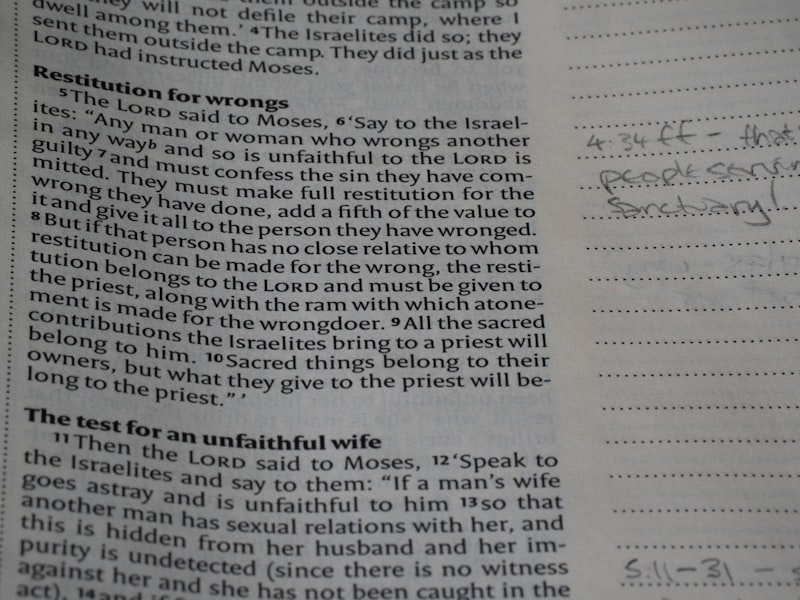 they will not defile their camp, where I
dwell among them.' ⁴The Israelites did so; they
sent them outside the camp. They did just as the
LORD had instructed Moses.
Restitution for wrongs
⁵The LORD said to Moses, ⁶'Say to the Israel-
ites: "Any man or woman who wrongs another
in any wayᵇ and so is unfaithful to the LORD is
guilty ⁷and must confess the sin they have com-
mitted. They must make full restitution for the
wrong they have done, add a fifth of the value to
it and give it all to the person they have wronged.
⁸But if that person has no close relative to whom
restitution can be made for the wrong, the resti-
tution belongs to the LORD and must be given to
the priest, along with the ram with which atone-
ment is made for the wrongdoer. ⁹All the sacred
contributions the Israelites bring to a priest will
belong to him. ¹⁰Sacred things belong to their
owners, but what they give to the priest will be-
long to the priest."'
The test for an unfaithful wife
¹¹Then the LORD said to Moses, ¹²'Speak to
the Israelites and say to them: "If a man's wife
goes astray and is unfaithful to him ¹³so that
another man has sexual relations with her, and
this is hidden from her husband and her im-
purity is undetected (since there is no witness
against her and she has not been caught in the
act), ¹⁴and
4.34ff - that
people
sanctuary!
5:11-31 -